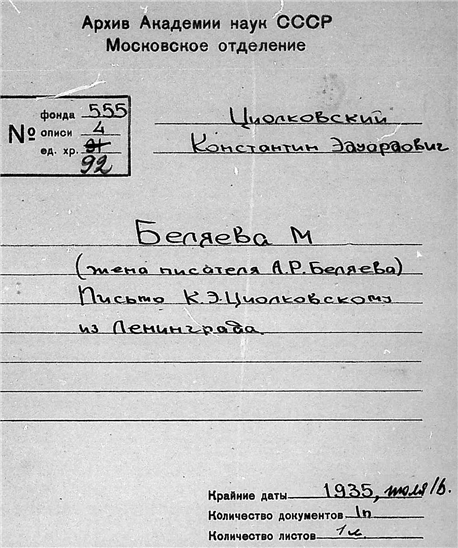 Архив Академии наук СССР
Московское отделение
№ фонда 555
описи 4
ед. хр. 91
92
Циолковский
Константин Эдуардович
Беляева М
(жена писателя А.Р.Беляева)
Письмо К.Э.Циолковскому
из Ленинграда.
Крайние даты 1935, июля 16.
Количество документов 1п
Количество листов 1л.